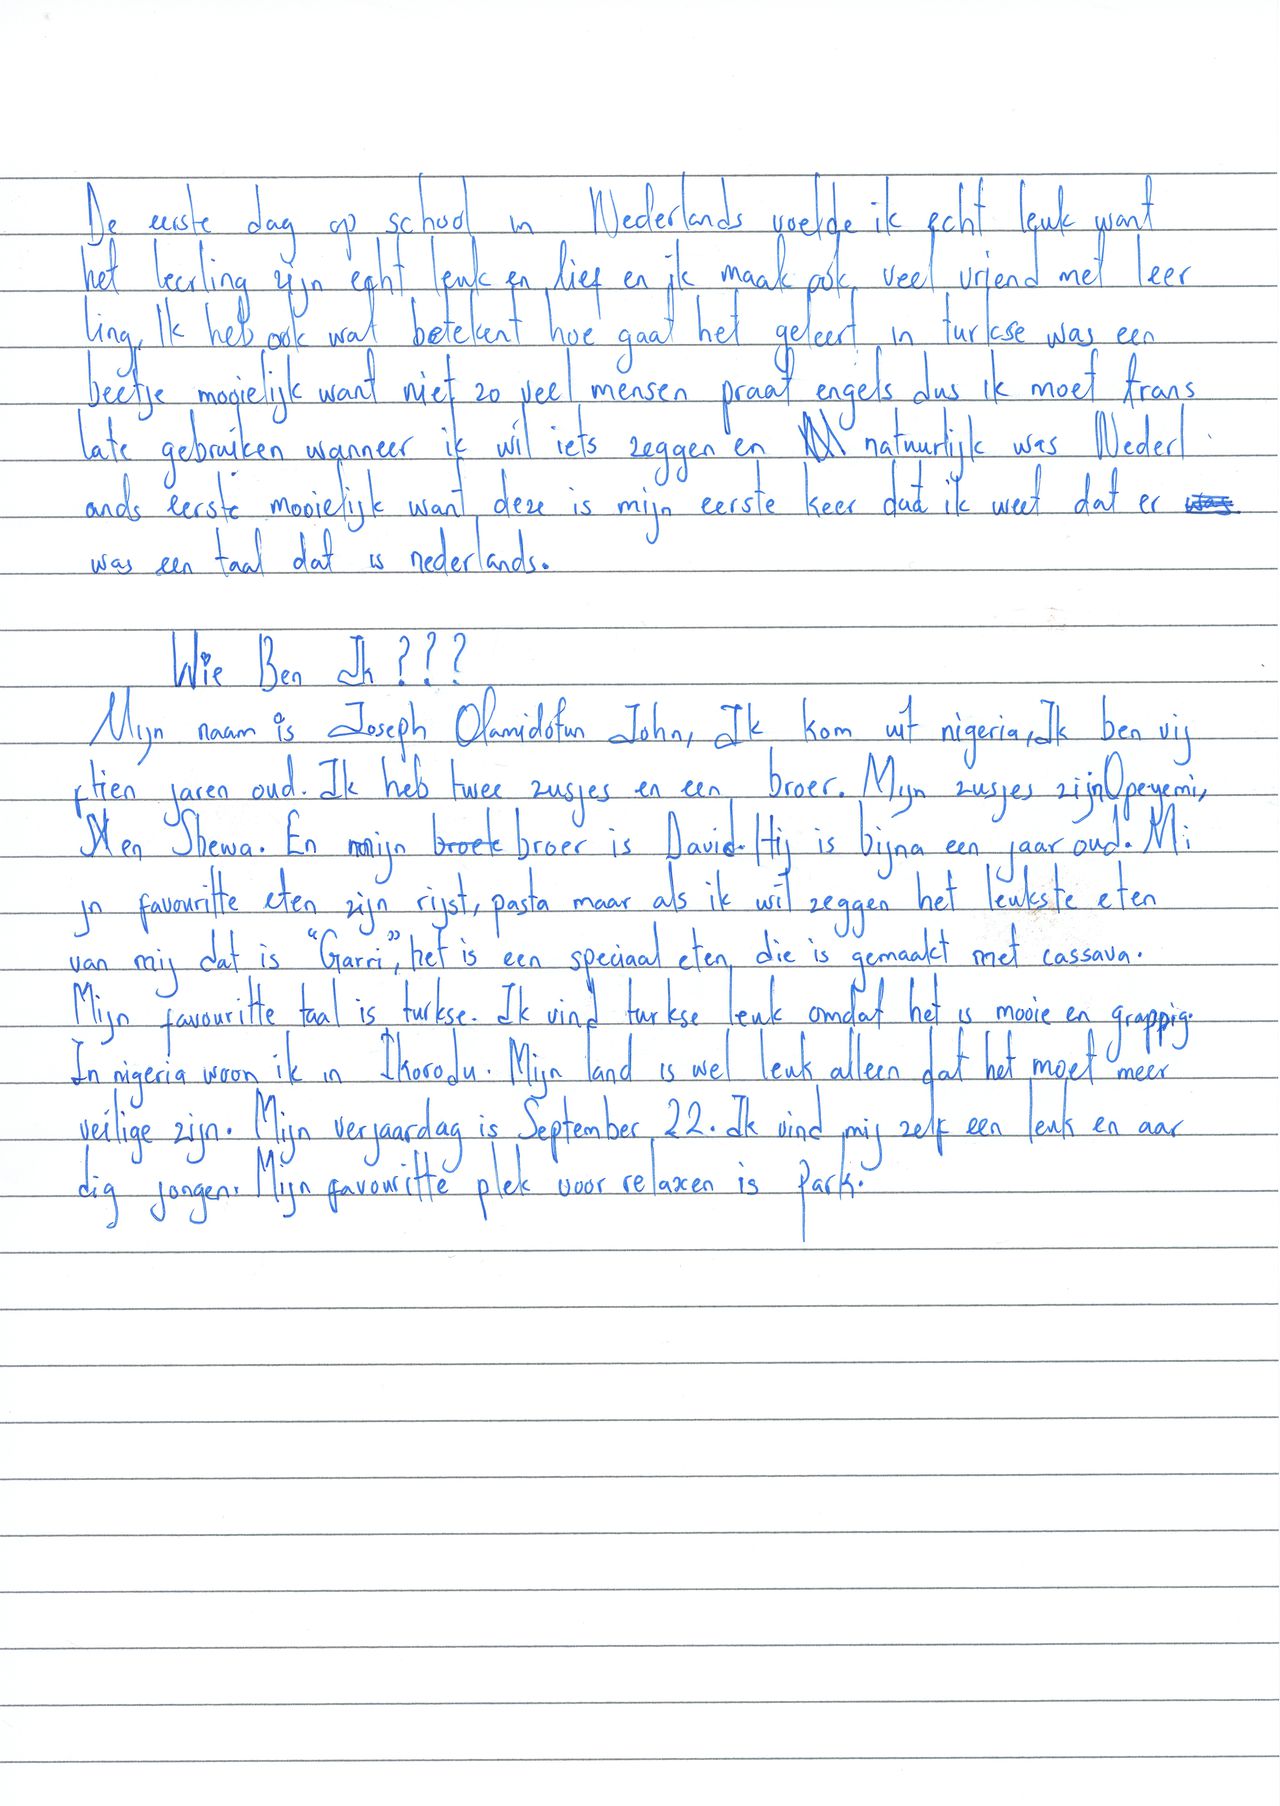 De eerste dag op school in Nederlands voelde ik echt leuk want
het leerling zijn echt leuk en lief en ik maak ook veel vriend met leer
ling, Ik heb ook wat betekent hoe gaat het geleert in turkse was een
beetje mooielijk want niet zo veel mensen praat engels dus ik moet trans
late gebruiken wanneer ik wil iets zeggen en natuurlijk was Nederl
ands eerste mooielijk want deze is mijn eerste keer dat ik weet dat er
was een taal dat is nederlands.
Wie Ben Ik ???
Mijn naam is Joseph Olamidotun John, Ik kom uit nigeria, Ik ben vij
ftien jaren oud. Ik heb twee zusjes en een broer. Mijn zusjes zijn Opeyemi,
en Shewa. En mijn broer is David. Hij is bijna een jaar oud. Mi
jn favouritte eten zijn rijst, pasta maar als ik wil zeggen het leukste eten
van mij dat is "Garri", het is een speciaal eten die is gemaakt met cassava.
Mijn favouritte taal is turkse. Ik vind turkse leuk omdat het is mooie en grappig.
In nigeria woon ik in Ikorodu. Mijn land is wel leuk alleen dat het moet meer
veilige zijn. Mijn verjaardag is September 22. Ik vind mij zelf een leuk en aar
dig jongen. Mijn favouritte plek voor relaxen is park.